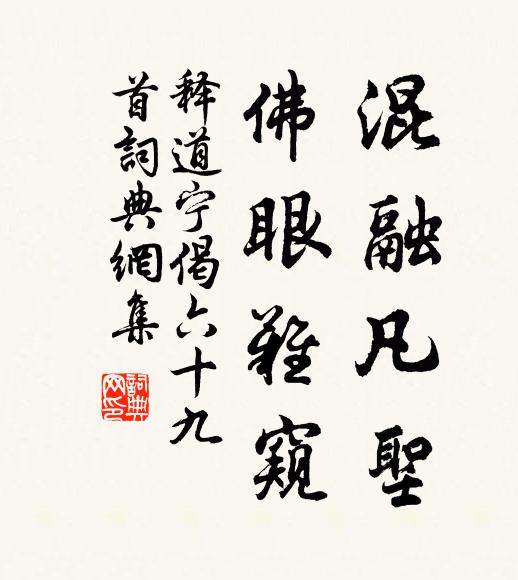 混融凡聖
佛眼難窺
释道宁偈六十九
首詞典網集
詞典
网印